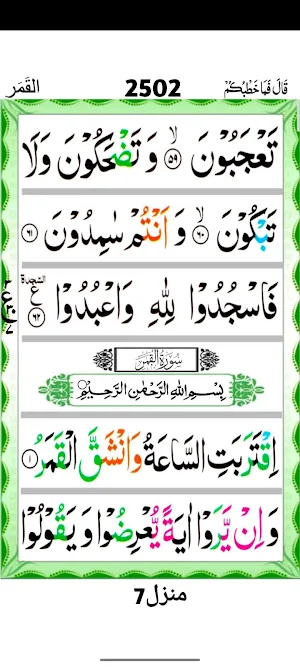 القَمَر 2502 قَالَ فَمَا خَطْبُكُمْ
تَعْجَبُوْنَ ۙ‏﴿۵۹﴾ وَ تَضْحَكُوْنَ وَلَا
تَبْكُوْنَ ۙ‏﴿۶۰﴾ وَ اَنْتُمْ سٰمِدُوْنَ ﴿۶۱﴾
فَاسْجُدُوْا لِلّٰهِ وَاعْبُدُوْا ﴿۶۲﴾ السجدة ع
سُوْرَةُ الْقَمَرِ
بِسْمِ اللهِ الرَّحْمٰنِ الرَّحِيْمِ
اِقْتَرَبَتِ السَّاعَةُ وَانْشَقَّ الْقَمَرُ ﴿۱﴾
وَ اِنْ يَّرَوْا اٰيَةً يُّعْرِضُوْا وَ يَقُوْلُوْا
منزل7